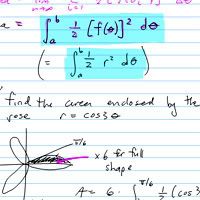 a = ∫_a^b 1/2 [f(θ)]² dθ
( = ∫_a^b 1/2 r² dθ )
find the area enclosed by the
rose r = cos 3θ
π/6
x 6 for full
shape
A = 6 · ∫^π/6 1/2 (cos 3